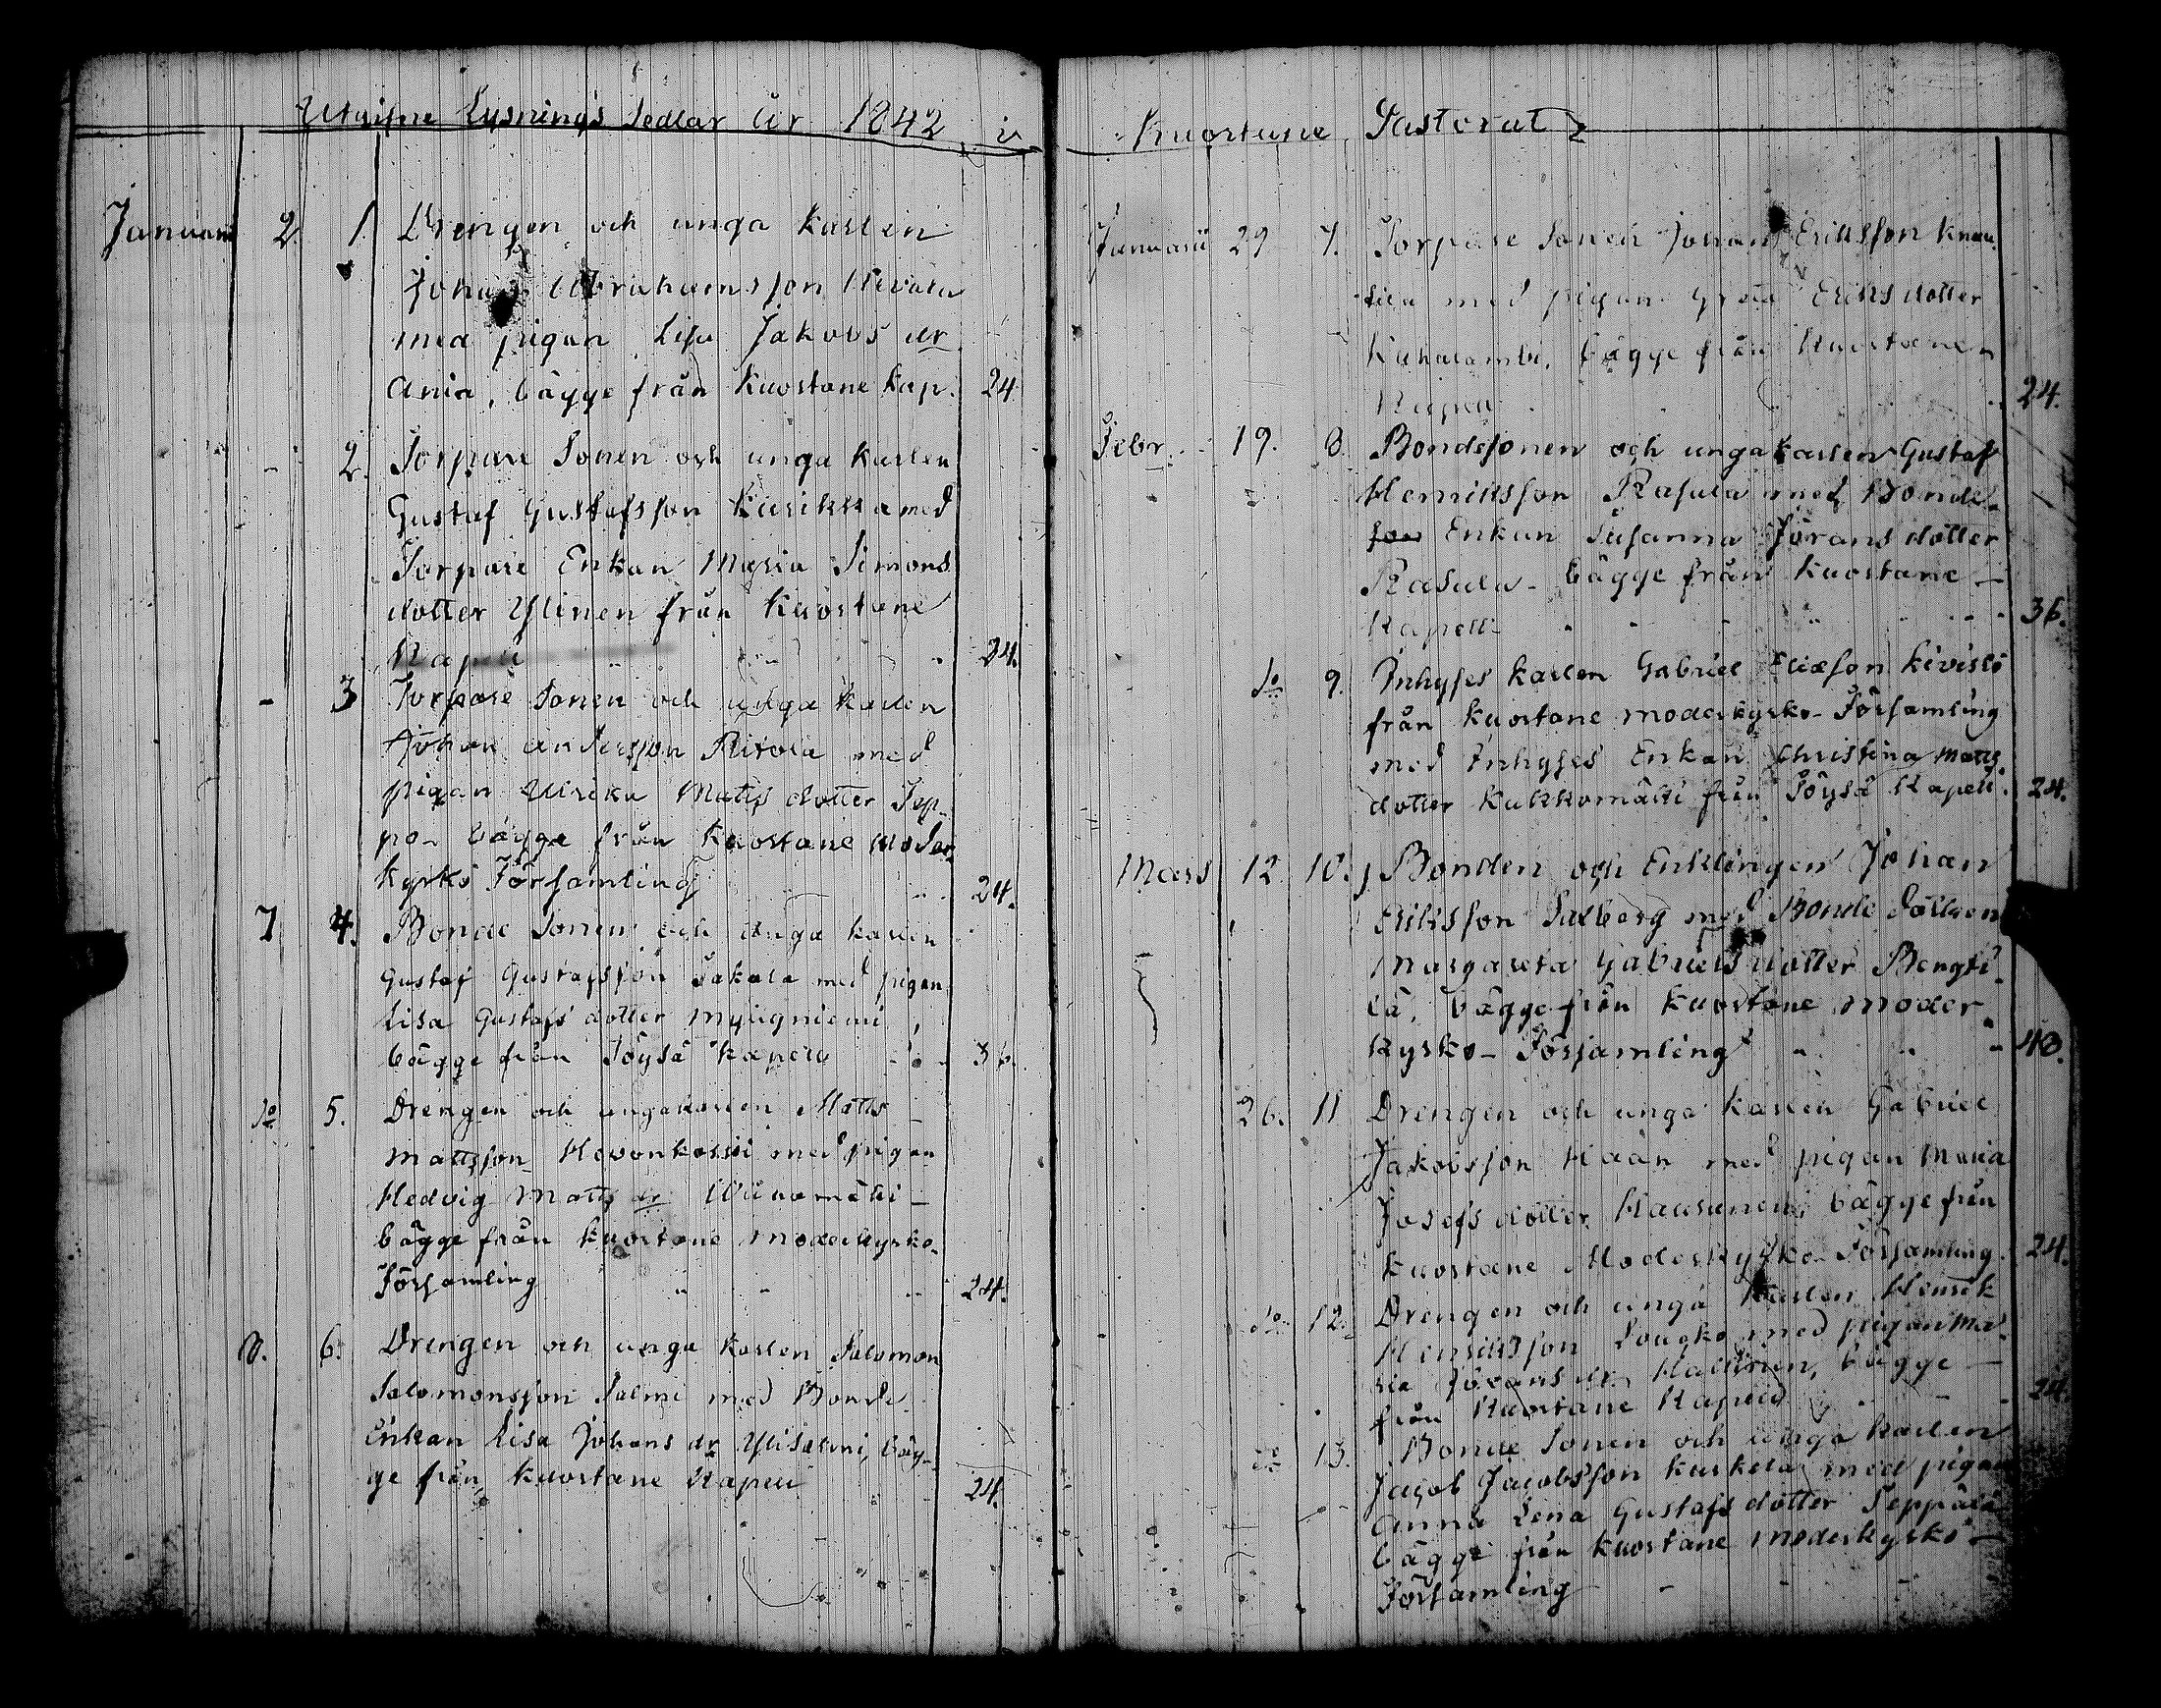 Utgifne Lysnings Sedlar år 1842 i
Januari 2. 1. Drengen och unga Karlen
Johan Abrahamsson Kivala
med pigan Lisa Jakobs dr
Ania, bägge från Kuortane Kap. 24.
- 2. Torpare Sonen och unga Karlen
Gustaf Gustafsson Kurikka med
Torpare Enkan Maria Simons
dotter Ylinen från Kuortane
Kapell 24.
- 3 Torpare Sonen och unga Karlen
Johan Andersson Ritola med
pigan Ulrika Matts dotter Sep-
po - bägge från Kuortane Moder
kyrko Församling 24.
7 4. Bonde Sonen och unga Karlen
Gustaf Gustafsson Sakala med pigan
Lisa Gustafs dotter Mylyniemi,
bägge från Töysä Kapell 36.
do 5. Drengen och unga Karlen Matts
Mattsson Hevonkoski med pigan
Hedvig Matts dr Wiinamäki -
bägge från Kuortane Moderkyrko-
Församling 24.
8. 6. Drengen och unga Karlen Salomon
Salomonsson Salmi med Bonde
Enkan Lisa Johans dr Ylisalmi, bäg-
ge från Kuortane Kapell 24.
Kuortane Pastorat
Januarii 29 7. Torpare Sonen Johan Eriksson Knuu-
tila med pigan Greta Eriks dotter
Kuhalambi, bägge från Kuortane
Kapell 24.
Febr. 19. 8. Bondesonen och unga Karlen Gustaf
Henriksson Rasula med Bonde-
son Enkan Susanna Jörans dotter
Rasula - bägge från Kuortane -
Kapell 36.
do 9. Inhyses Karlen Gabriel Eliæson Kivistö
från Kuortane moderkyrko-Församling
med Inhyses Enkan Christina Matts
dotter Kukkomäki från Töysä Kapell. 24.
Mars 12 10. Bonden och Enklingen Johan
Eriksson Salberg med Bonde Dottren
Margareta Gabriels dotter Bengti-
lä, bägge från Kuortane moder
kyrko-Församling 48.
26. 11 Drengen och unga Karlen Gabriel
Jakobsson Haan med pigan Maria
Josefs dotter Hausunen, bägge från
Kuortane Moderkyrko-Församling. 24.
do 12. Drengen och unga Karlen Henrik
Henriksson Louko med pigan Ma-
ria Jörans dr Hallinen, bägge -
från Kuortane Kapell 24.
do 13. Bonde Sonen och unga Karlen
Jacob Jacobsson Kuskela med pigan
Anna Lena Gustafs dotter Seppälä
bägge från Kuortane moderkyrko -
Församling